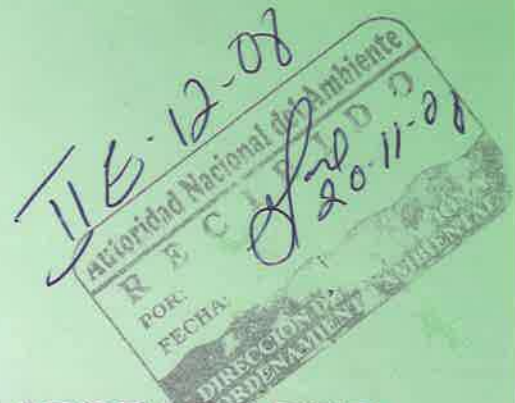 IIE-12-08
Autoridad Nacional del Ambiente
RECIBIDO
20-11-08
POR:
FECHA:
DIRECCION
ORDENAMIENT AMBIENTAL